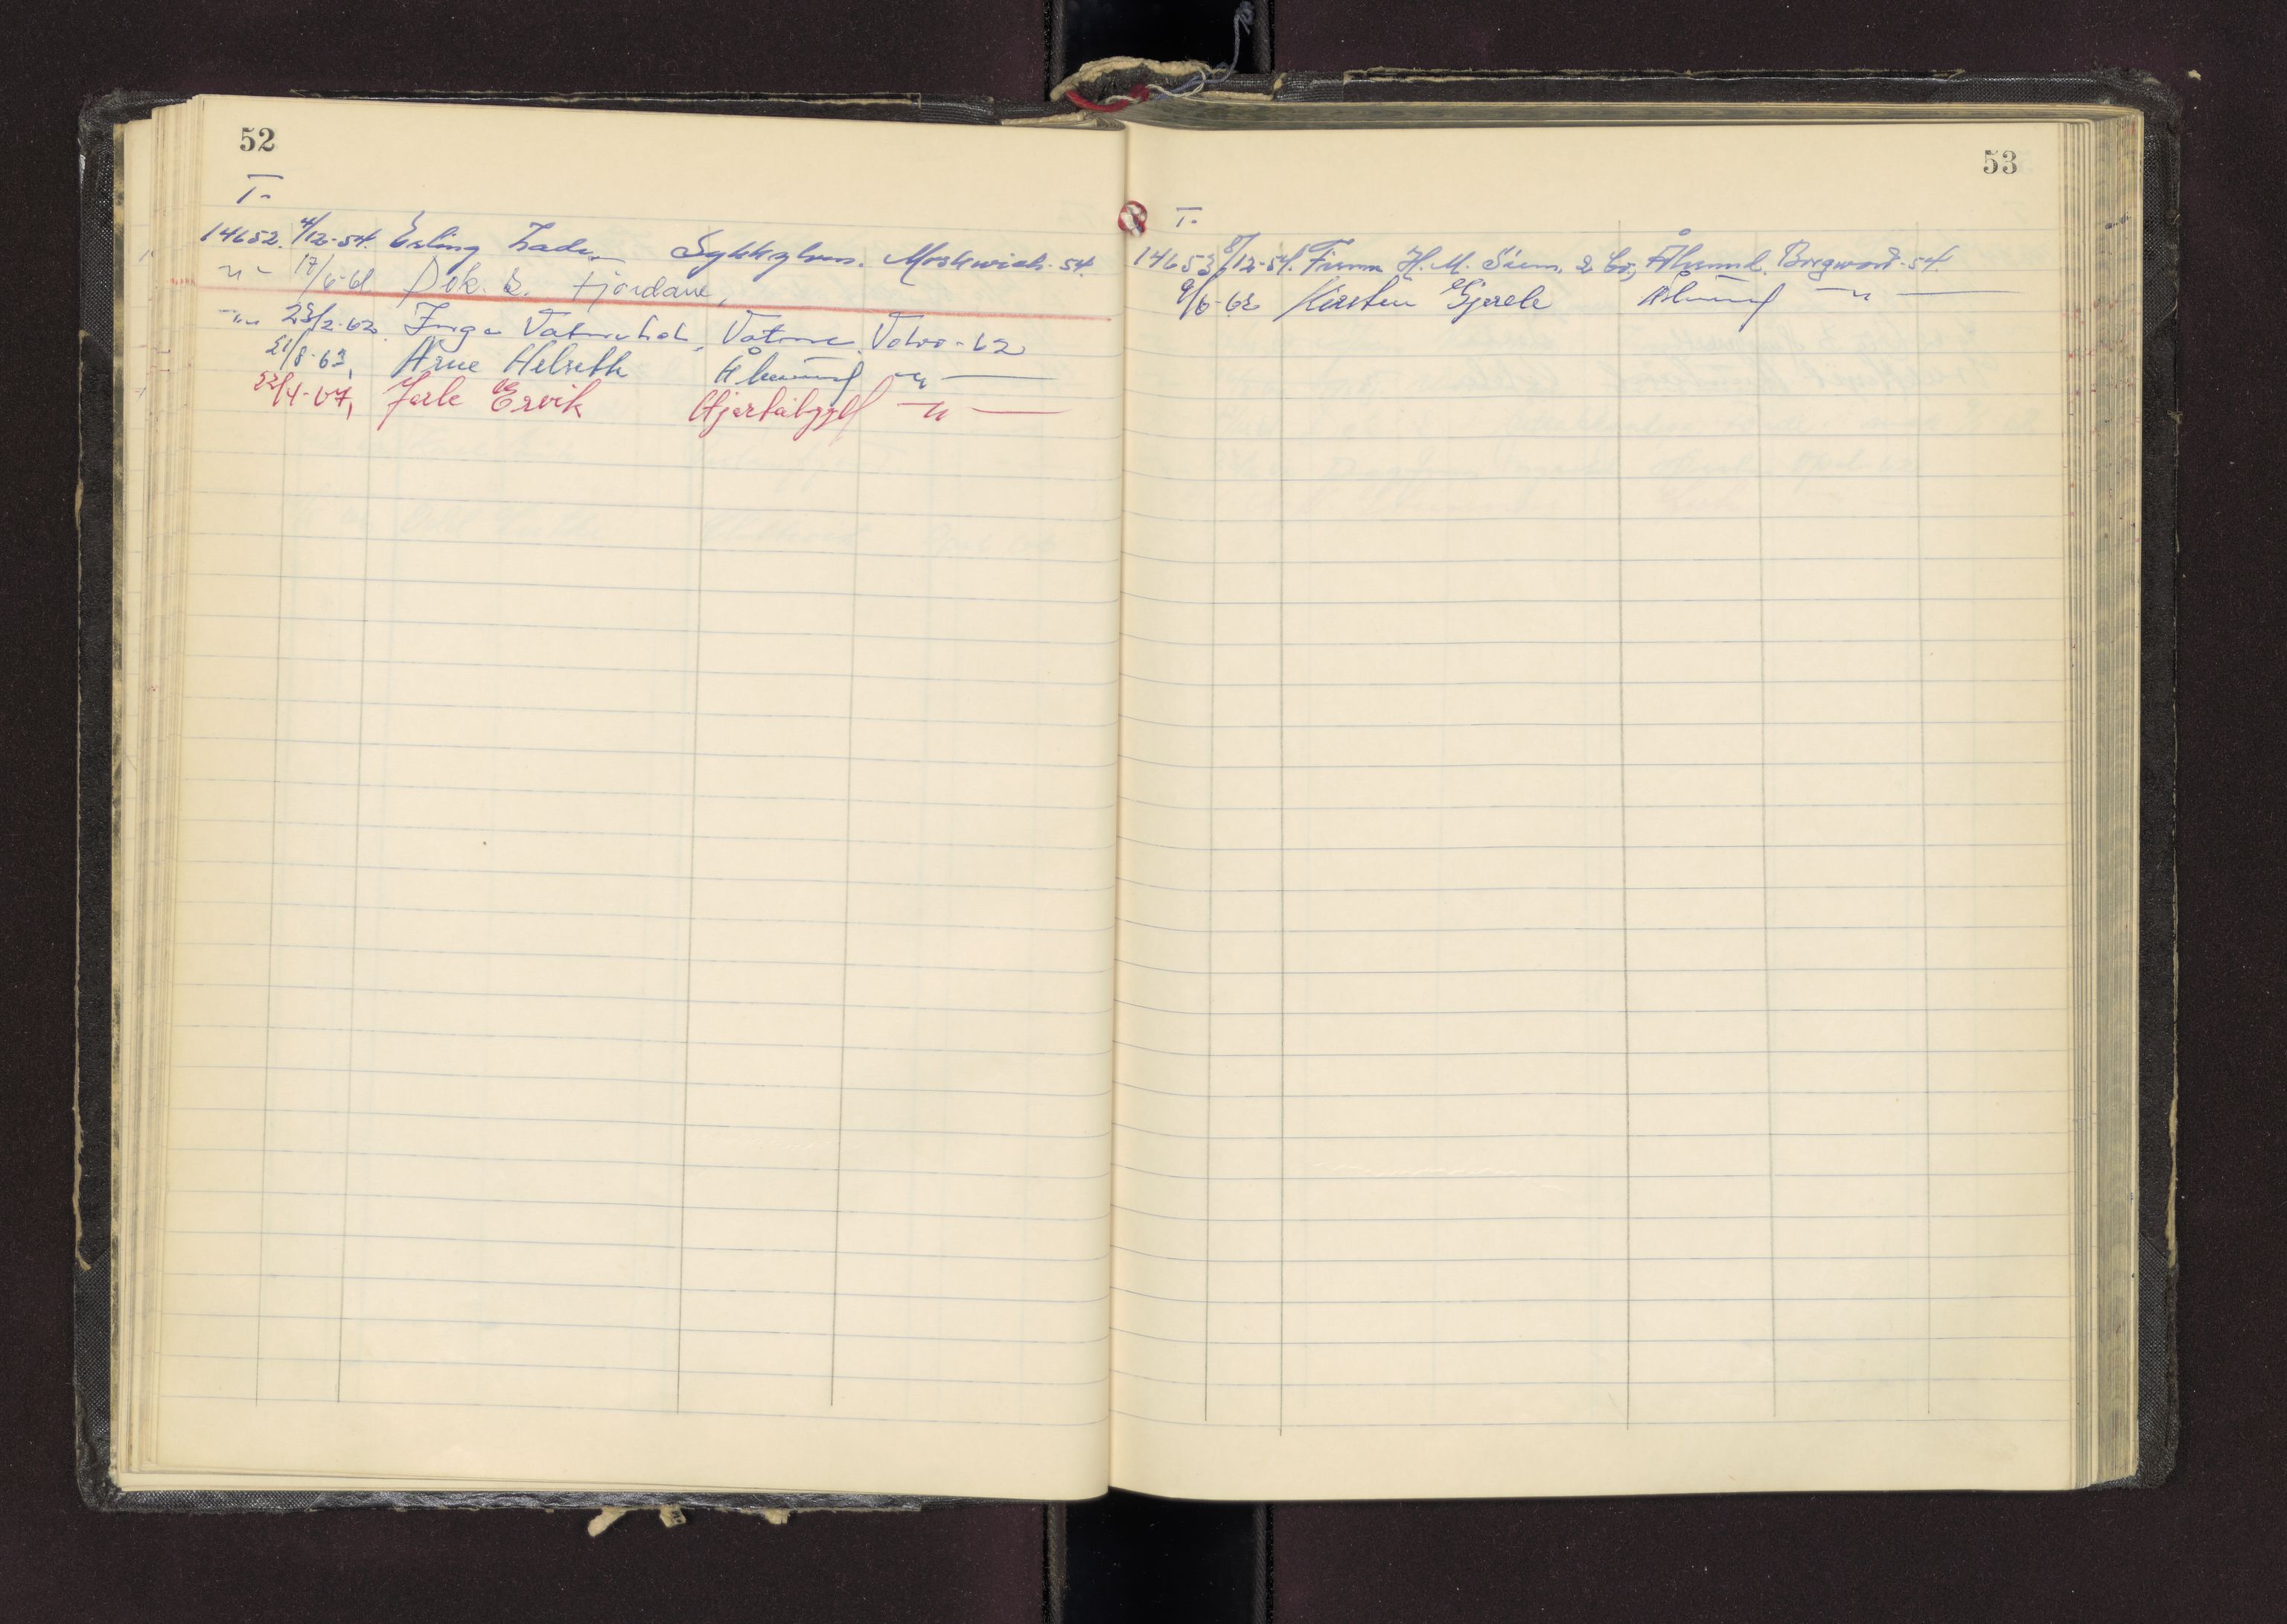 52
T-
14652. 4/12-54. Erling Sykkylven. Moskwich-54.
-"- 17/6-61 Fjordane,
-"- 23/2-62. Inga Vatnehol, Vatne. Volvo-62
21/8-63, Arne Helseth Ålesund -"-
22/4-67, Jarle Ervik Hjørtåbygd -"-
53
T.
14653 8/12-54. Firma H. M. & Co, Ålesund. Borgward-54.
9/6-62 Kirsten Gjerde Ålesund -"-